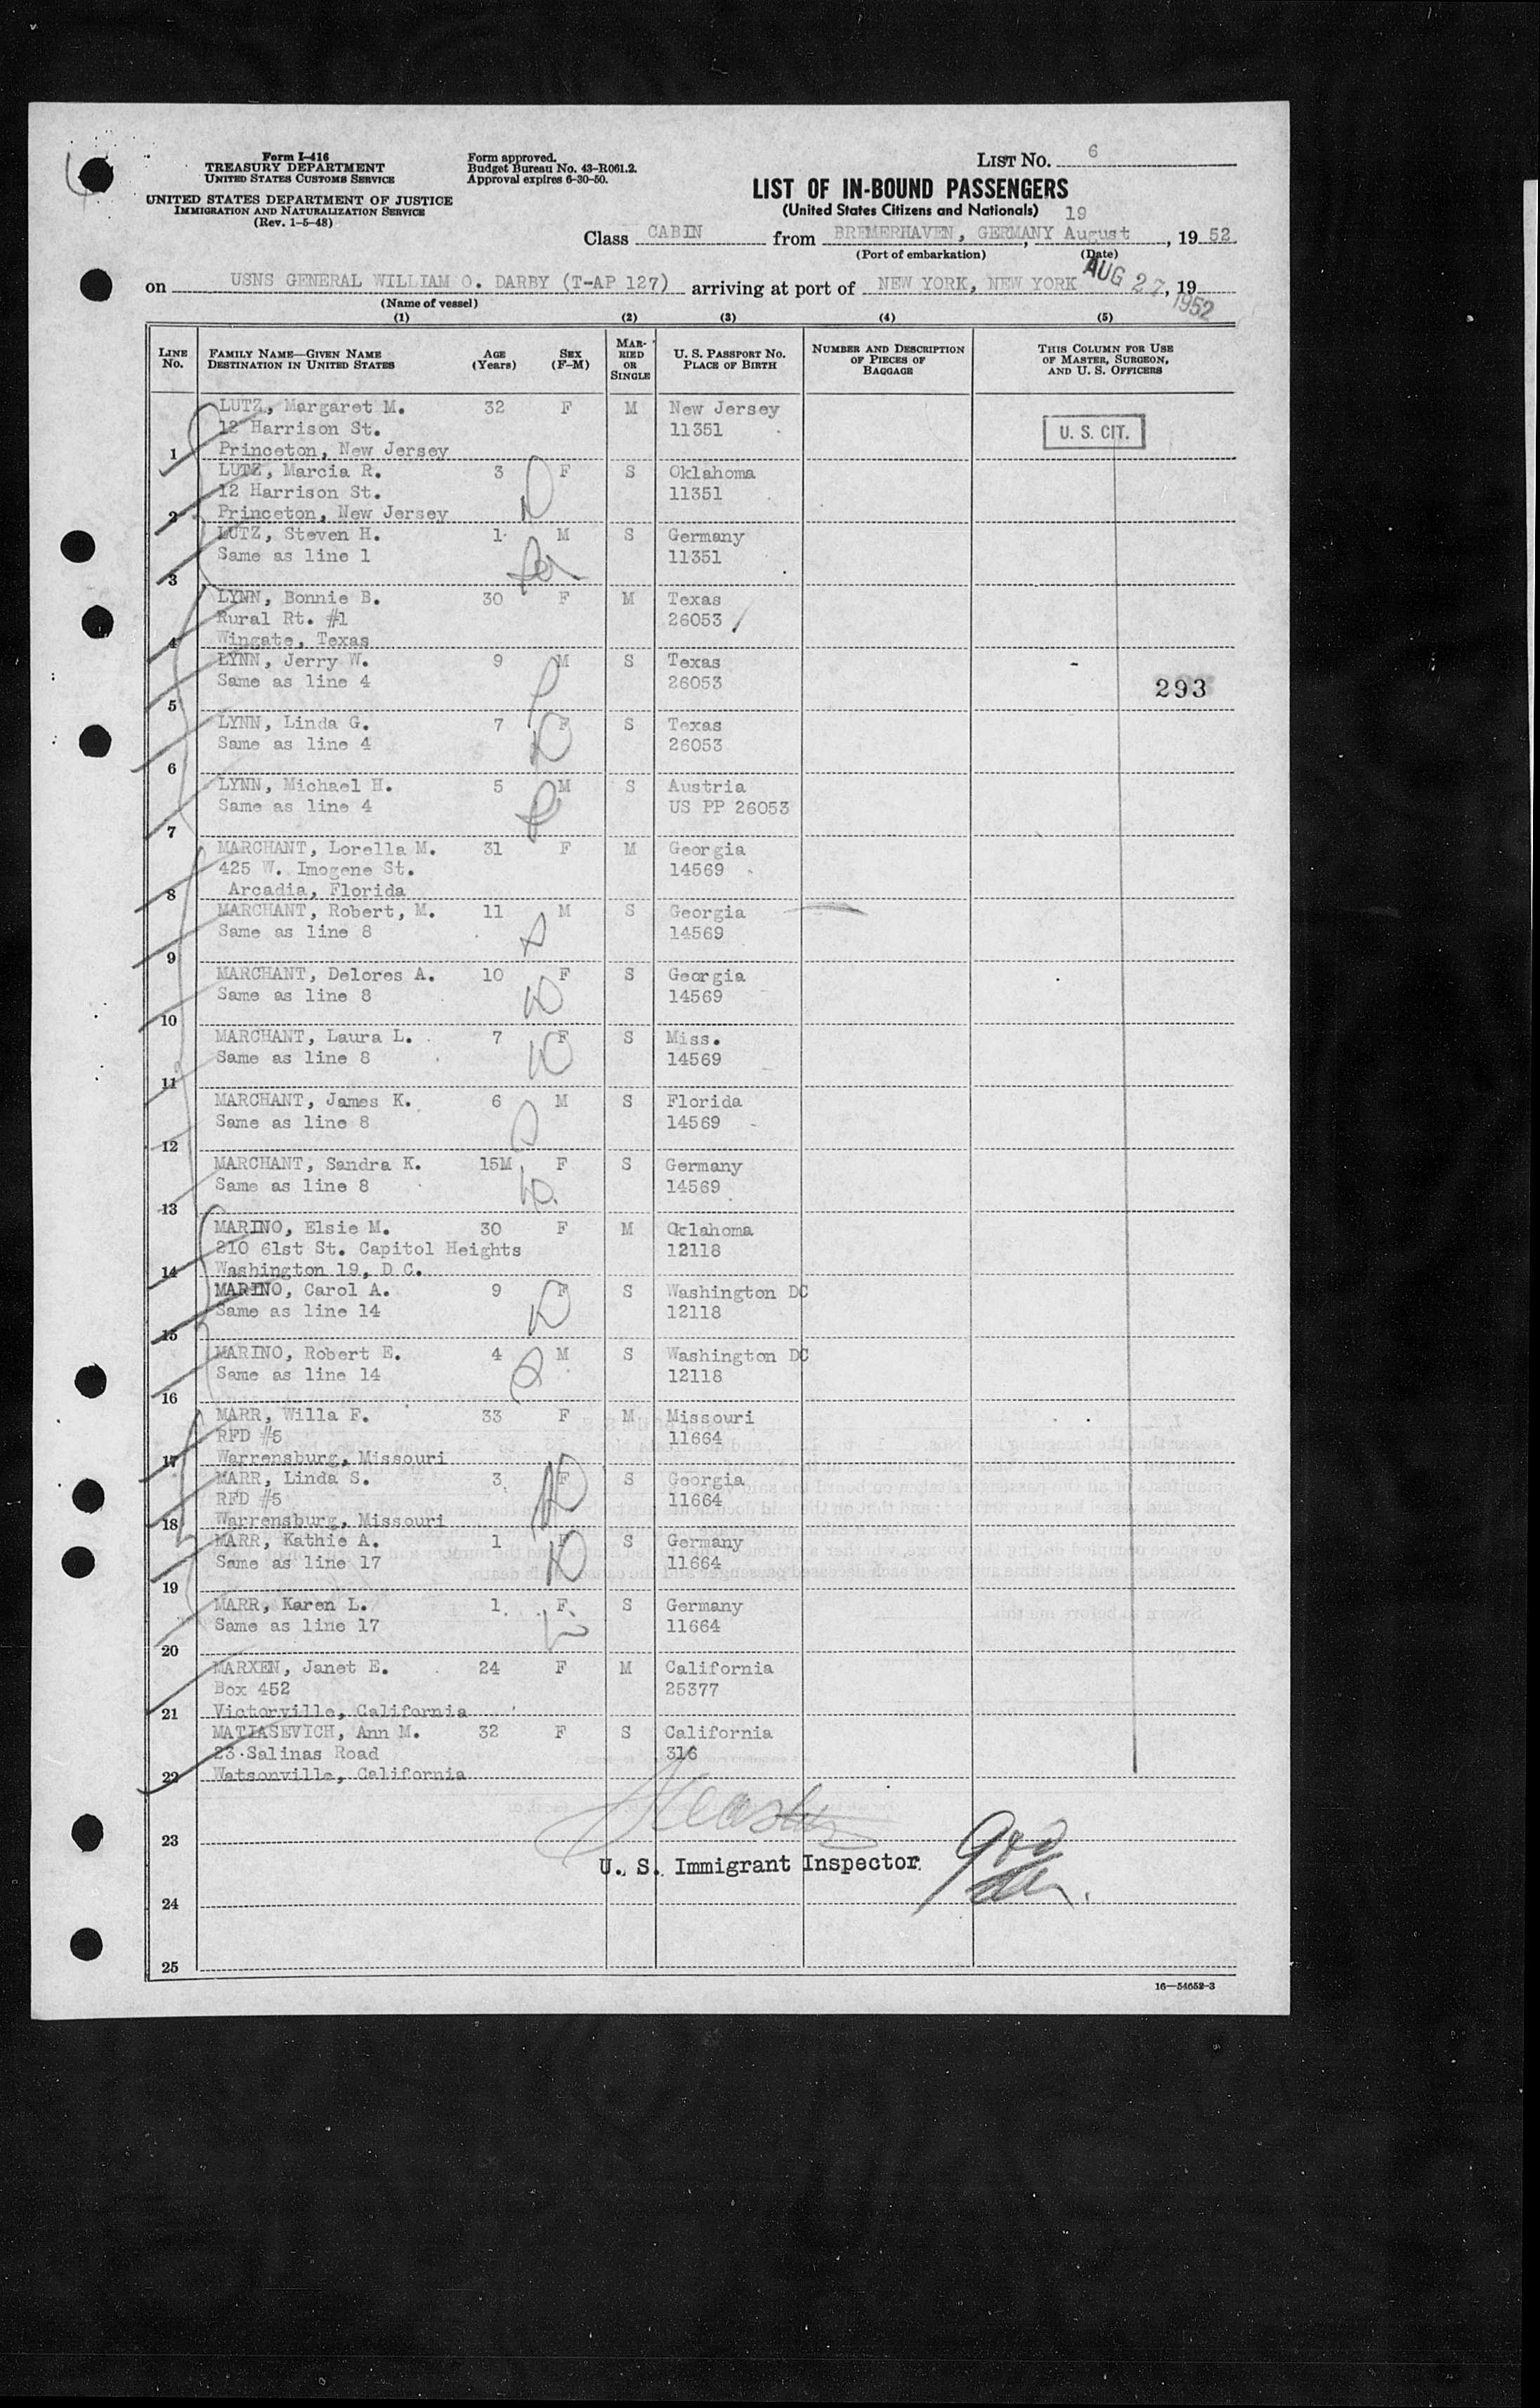 Form I-416
TREASURY DEPARTMENT
UNITED STATES CUSTOMS SERVICE
UNITED STATES DEPARTMENT OF JUSTICE
IMMIGRATION AND NATURALIZATION SERVICE
(Rev. 1-5-48)
Form approved.
Budget Bureau No. 43-R061.2.
Approval expires 6-30-50.
LIST NO. 6
LIST OF IN-BOUND PASSENGERS
(United States Citizens and Nationals)
19
Class CABIN from BREMERHAVEN, GERMANY, August, 19 52
(Port of embarkation) (Date)
on USNS GENERAL WILLIAM O. DARBY (T-AP 127) arriving at port of NEW YORK, NEW YORK AUG 27, 19
1952
(Name of vessel)
(1) (2) (3) (4) (5)
LINE NO. FAMILY NAME—GIVEN NAME DESTINATION IN UNITED STATES AGE (Years) SEX (F-M) MARRIED OR SINGLE U. S. PASSPORT NO. PLACE OF BIRTH NUMBER AND DESCRIPTION OF PIECES OF BAGGAGE THIS COLUMN FOR USE OF MASTER, SURGEON, AND U. S. OFFICERS
LUTZ, Margaret M. 32 F M New Jersey
12 Harrison St. 11351 U. S. CIT.
1 Princeton, New Jersey
LUTZ, Marcia R. 3 F S Oklahoma
12 Harrison St. 11351
2 Princeton, New Jersey
LUTZ, Steven H. 1 M S Germany
Same as line 1 11351
3
LYNN, Bonnie B. 30 F M Texas
Rural Rt. #1 26053
4 Wingate, Texas
LYNN, Jerry W. 9 M S Texas
Same as line 4 26053 293
5
LYNN, Linda G. 7 F S Texas
Same as line 4 26053
6
LYNN, Michael H. 5 M S Austria
Same as line 4 US PP 26053
7
MARCHANT, Lorella M. 31 F M Georgia
425 W. Imogene St. 14569
8 Arcadia, Florida
MARCHANT, Robert, M. 11 M S Georgia
Same as line 8 14569
9
MARCHANT, Delores A. 10 F S Georgia
Same as line 8 14569
10
MARCHANT, Laura L. 7 F S Miss.
Same as line 8 14569
11
MARCHANT, James K. 6 M S Florida
Same as line 8 14569
12
MARCHANT, Sandra K. 15M F S Germany
Same as line 8 14569
13
MARINO, Elsie M. 30 F M Oklahoma
210 61st St. Capitol Heights 12118
14 Washington 19, D C.
MARINO, Carol A. 9 F S Washington DC
Same as line 14 12118
15
MARINO, Robert E. 4 M S Washington DC
Same as line 14 12118
16
MARR, Willa F. 33 F M Missouri
RFD #5 11664
17 Warrensburg, Missouri
MARR, Linda S. 3 F S Georgia
RFD #5 11664
18 Warrensburg, Missouri
MARR, Kathie A. 1 F S Germany
Same as line 17 11664
19
MARR, Karen L. 1 F S Germany
Same as line 17 11664
20
MARXEN, Janet E. 24 F M California
Box 452 25377
21 Victorville, California
MATIASEVICH, Ann M. 32 F S California
23 Salinas Road 316
22 Watsonville, California
23
U. S. Immigrant Inspector
24
25
16—54652-3